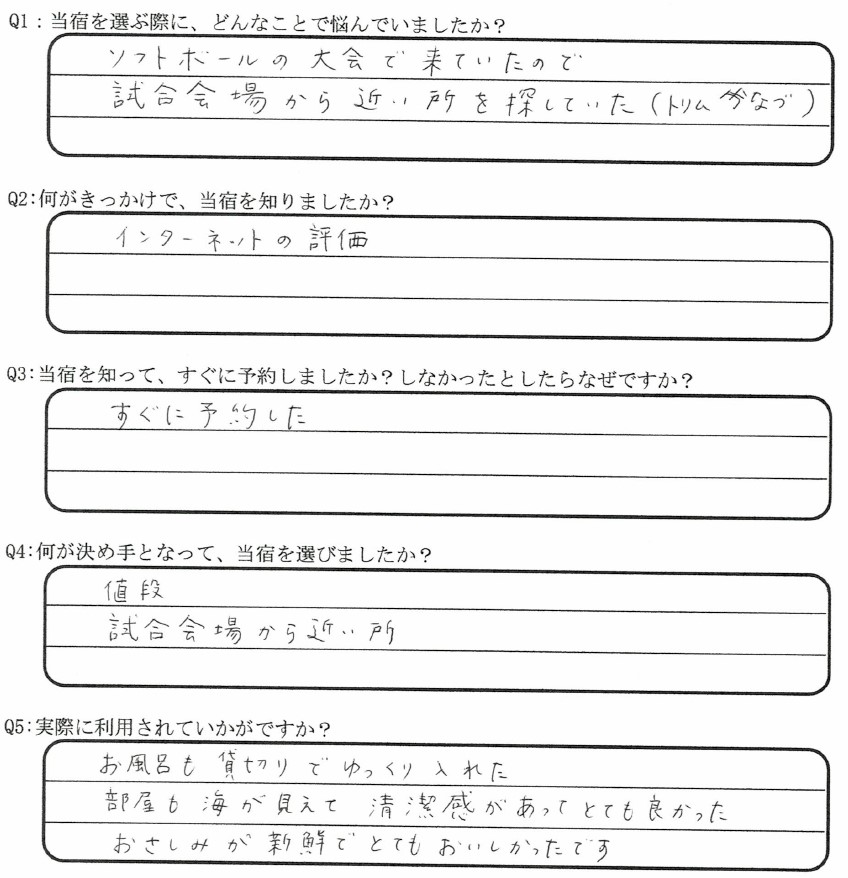 Q1：当宿を選ぶ際に、どんなことで悩んでいましたか？
ソフトボールの大会で来ていたので
試合会場から近い所を探していた（トリム
Q2:何がきっかけで、当宿を知りましたか？
インターネットの評価
Q3:当宿を知って、すぐに予約しましたか？しなかったとしたらなぜですか？
すぐに予約した
Q4:何が決め手となって、当宿を選びましたか？
値段
試合会場から近い所
Q5:実際に利用されていかがですか？
お風呂も貸切りでゆっくり入れた
部屋も海が見えて清潔感があってとても良かった
おさしみが新鮮でとてもおいしかったです